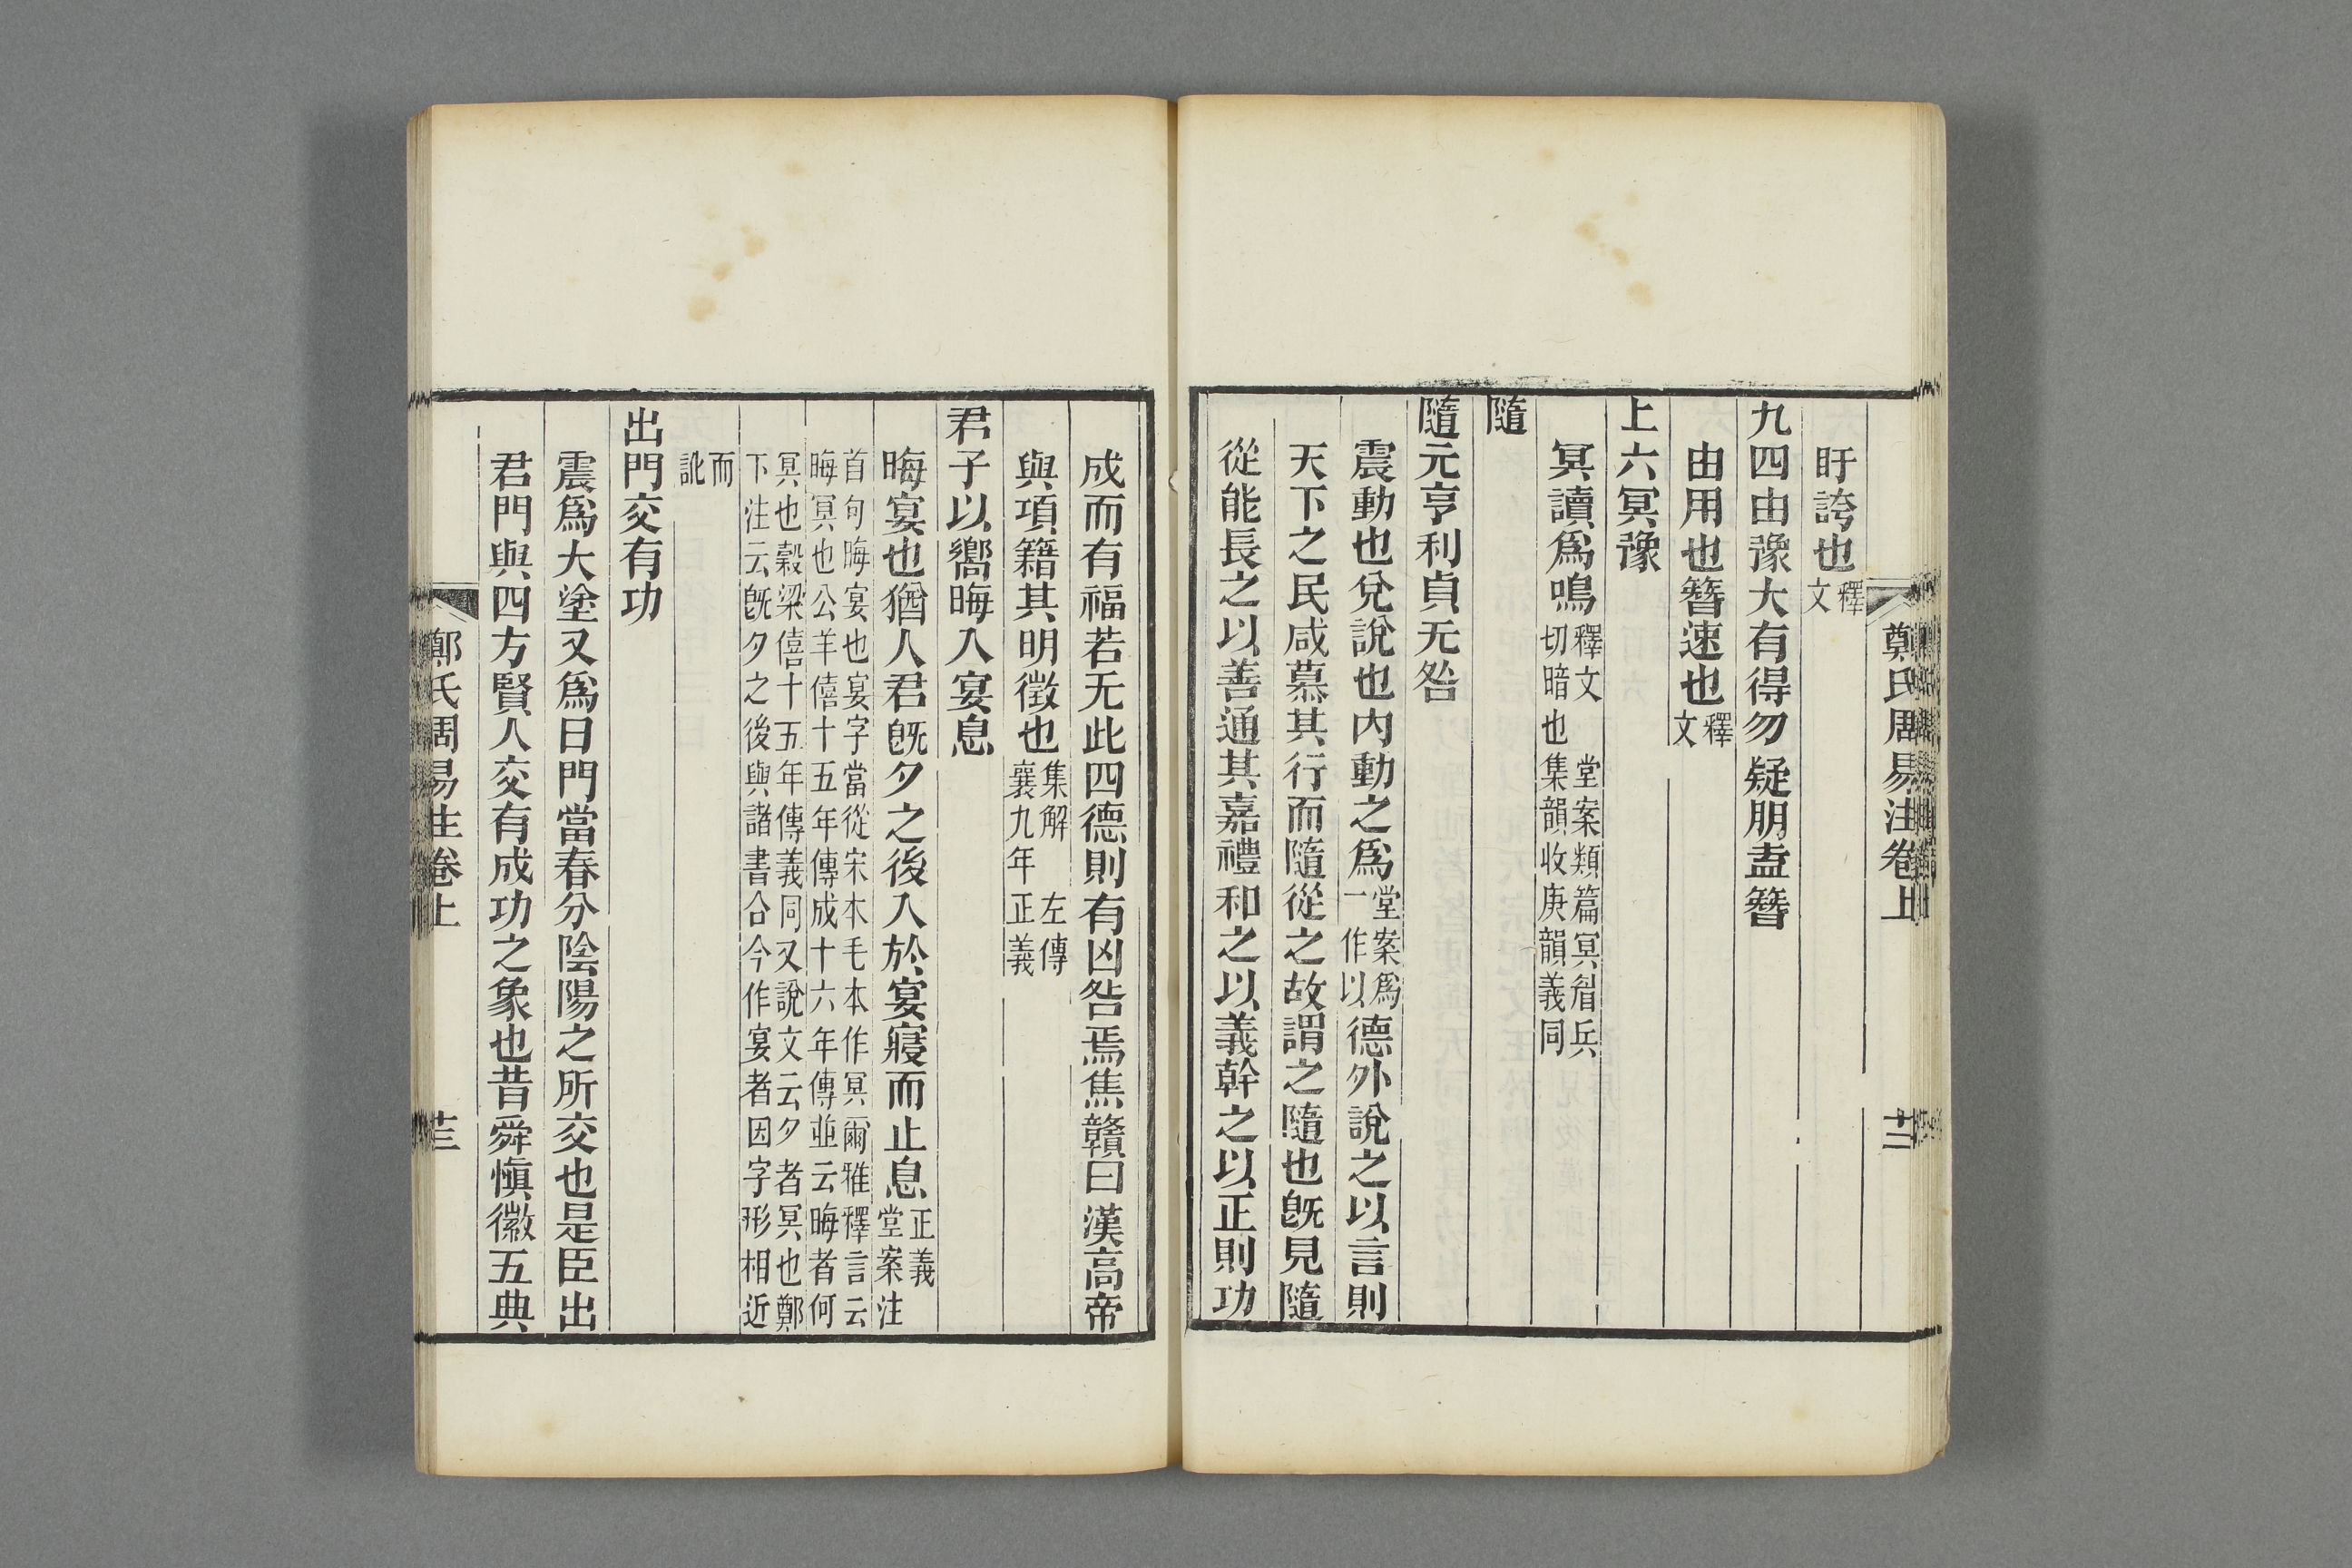 鄭氏周易注卷上
十二
盱誇也釋文
九四由豫大有得勿疑朋盍簪
由用也簪速也釋文
上六冥豫
冥讀爲鳴釋文 堂案類篇冥眉兵切暗也集韻收庚韻義同
隨
隨元亨利貞无咎
震動也兌說也內動之爲堂案爲一作以德外說之以言則
天下之民咸慕其行而隨從之故謂之隨也旣見隨
從能長之以善通其嘉禮和之以義幹之以正則功
成而有福若无此四德則有凶咎焉焦贛曰漢高帝
與項籍其明徵也集解 左傳襄九年正義
君子以嚮晦入宴息
晦宴也猶人君旣夕之後入於宴寢而止息正義堂案注
首句晦宴也宴字當從宋本毛本作冥爾雅釋言云
晦冥也公羊僖十五年傳成十六年傳並云晦者何
冥也穀梁僖十五年傳義同又說文云夕者冥也鄭
下注云旣夕之後與諸書合今作宴者因字形相近
而訛
出門交有功
震爲大塗又爲日門當春分陰陽之所交也是臣出
君門與四方賢人交有成功之象也昔舜愼徽五典
鄭氏周易注卷上
十三